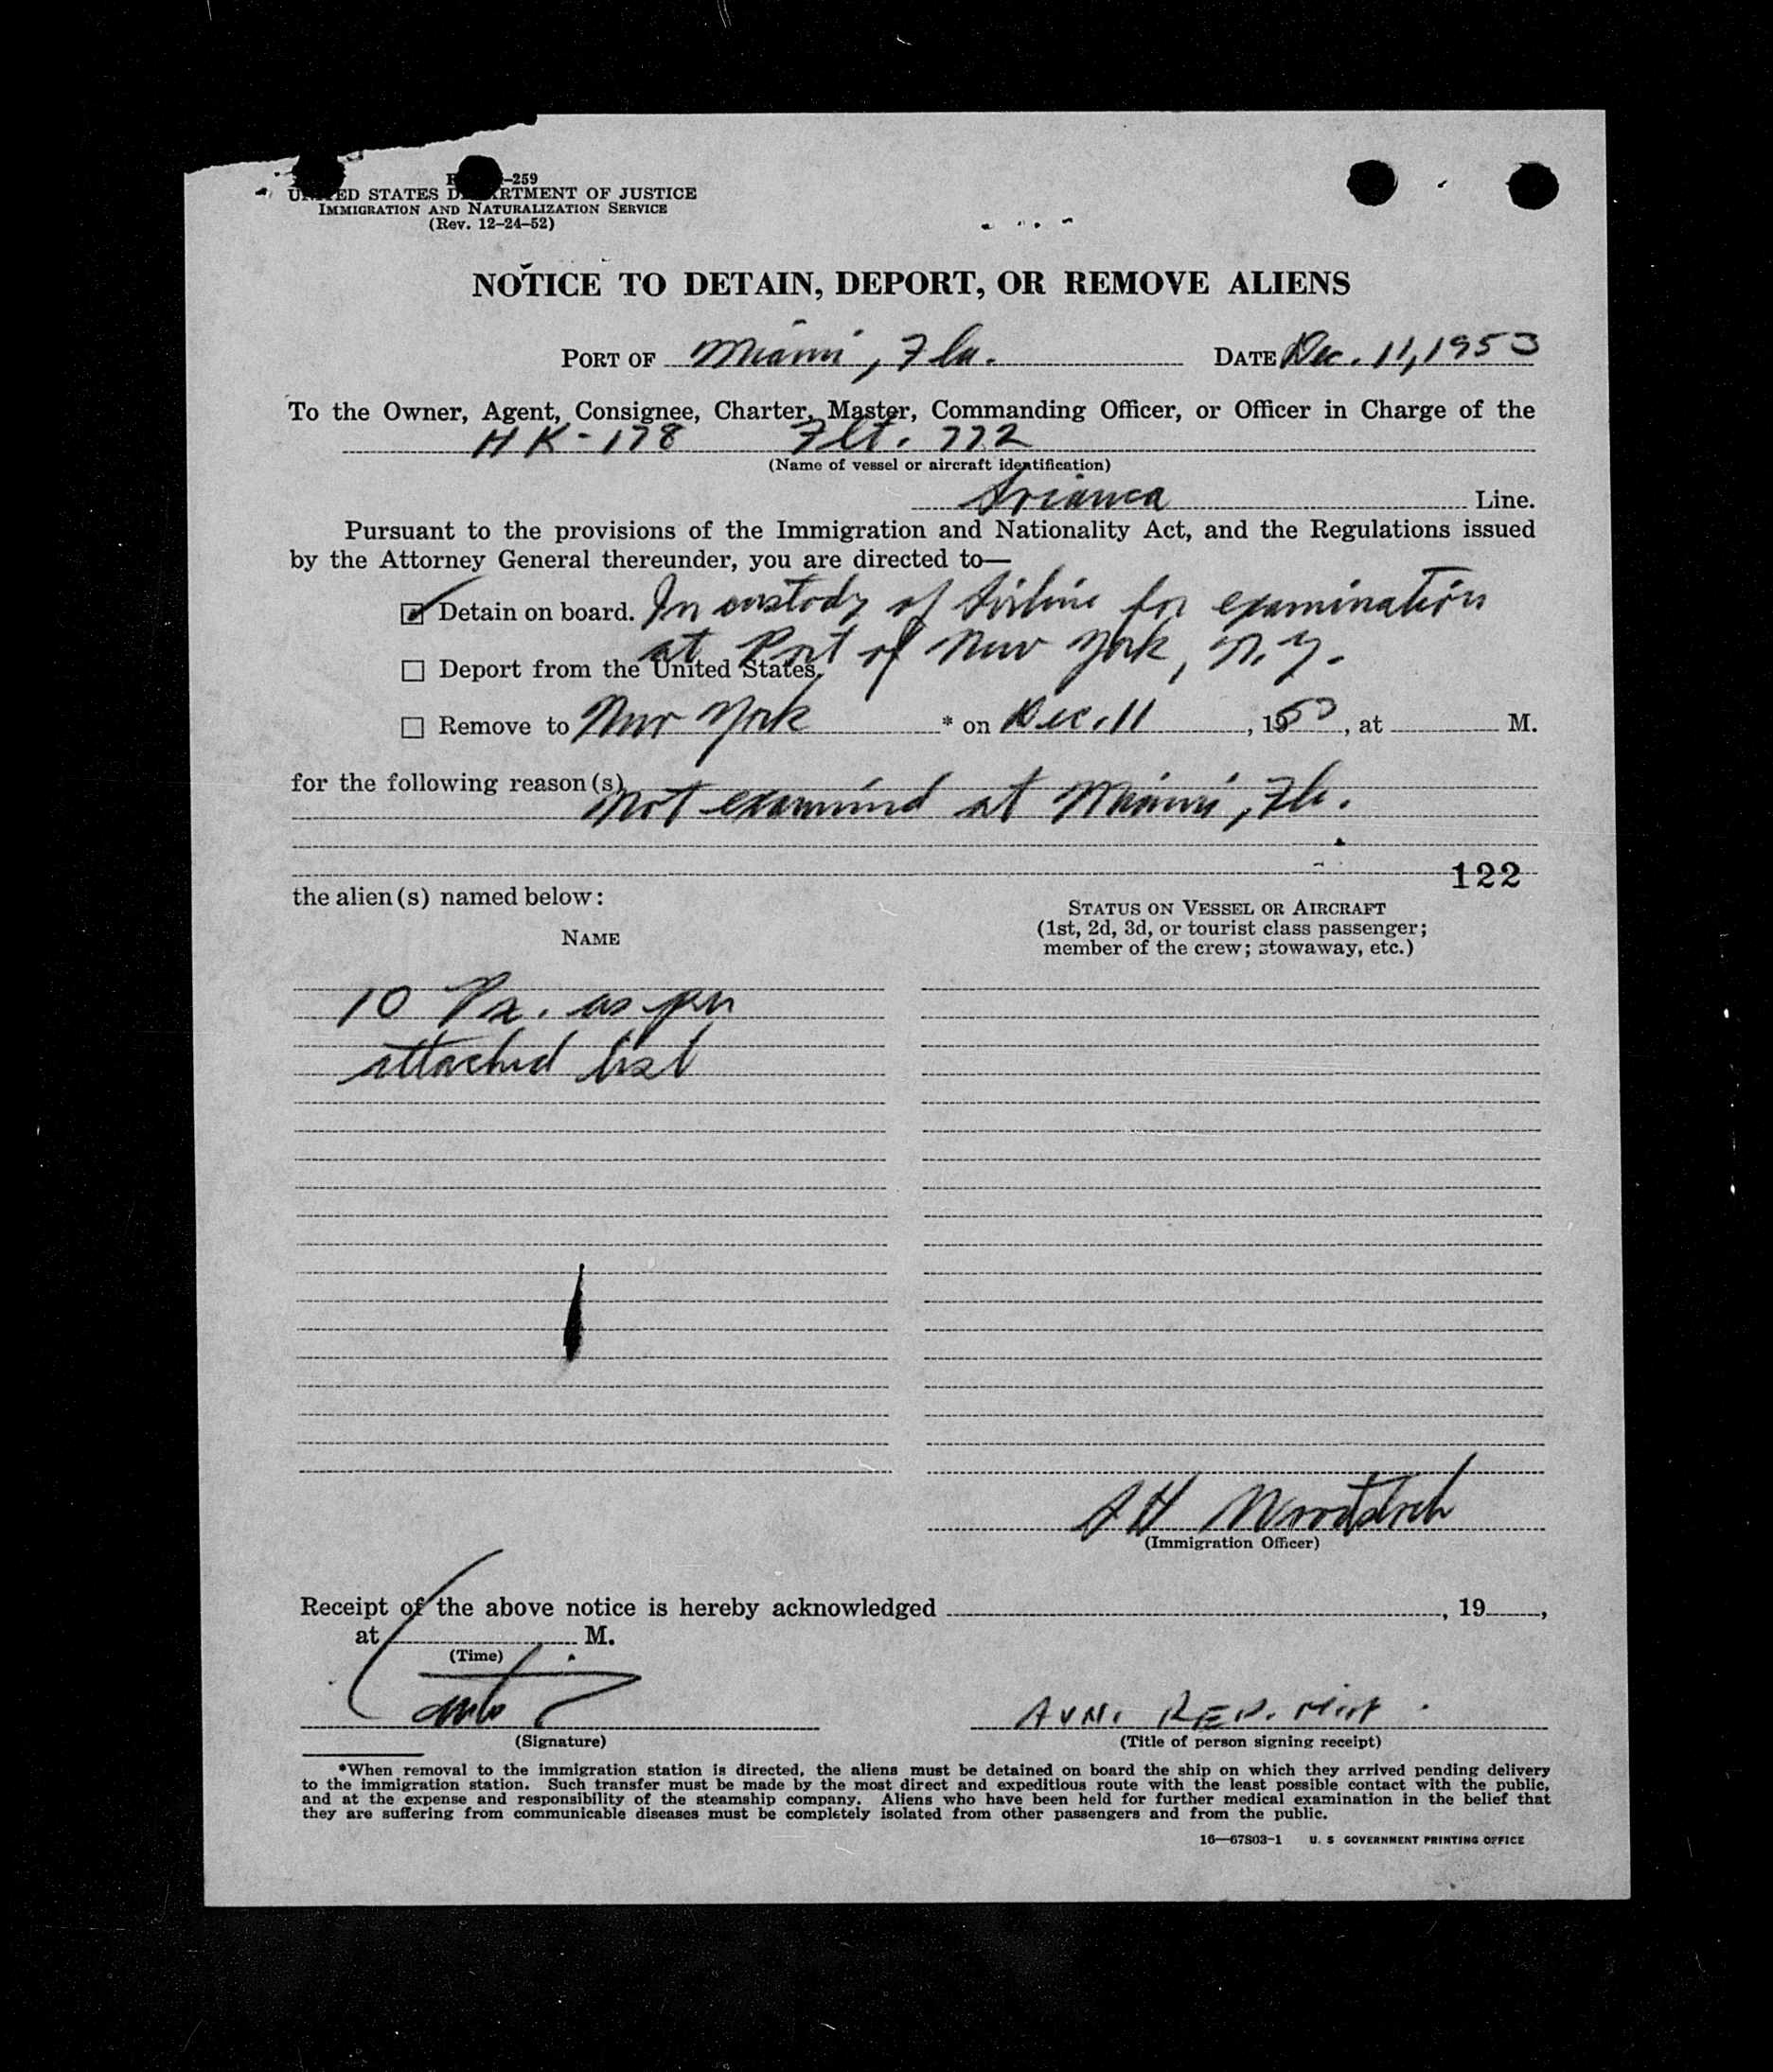 -259
UNITED STATES DEPARTMENT OF JUSTICE
IMMIGRATION AND NATURALIZATION SERVICE
(Rev. 12-24-52)
NOTICE TO DETAIN, DEPORT, OR REMOVE ALIENS
PORT OF Miami, Fla. DATE Dec. 11, 1953
To the Owner, Agent, Consignee, Charter, Master, Commanding Officer, or Officer in Charge of the
HK-178 Flt. 772
(Name of vessel or aircraft identification)
Line.
Pursuant to the provisions of the Immigration and Nationality Act, and the Regulations issued
by the Attorney General thereunder, you are directed to—
☑ Detain on board. In custody of Airline for examination
at Port of New York, N.Y.
☐ Deport from the United States.
☐ Remove to New York * on Dec. 11, 1953, at M.
for the following reason(s)
Not examined at Miami, Fla.
122
the alien(s) named below:
NAME
STATUS ON VESSEL OR AIRCRAFT
(1st, 2d, 3d, or tourist class passenger;
member of the crew; stowaway, etc.)
10 Px. as per
attached list
(Immigration Officer)
Receipt of the above notice is hereby acknowledged , 19 ,
at M.
(Time)
AVN. REP.
(Signature)
(Title of person signing receipt)
*When removal to the immigration station is directed, the aliens must be detained on board the ship on which they arrived pending delivery
to the immigration station. Such transfer must be made by the most direct and expeditious route with the least possible contact with the public,
and at the expense and responsibility of the steamship company. Aliens who have been held for further medical examination in the belief that
they are suffering from communicable diseases must be completely isolated from other passengers and from the public.
16—67803-1 U. S GOVERNMENT PRINTING OFFICE